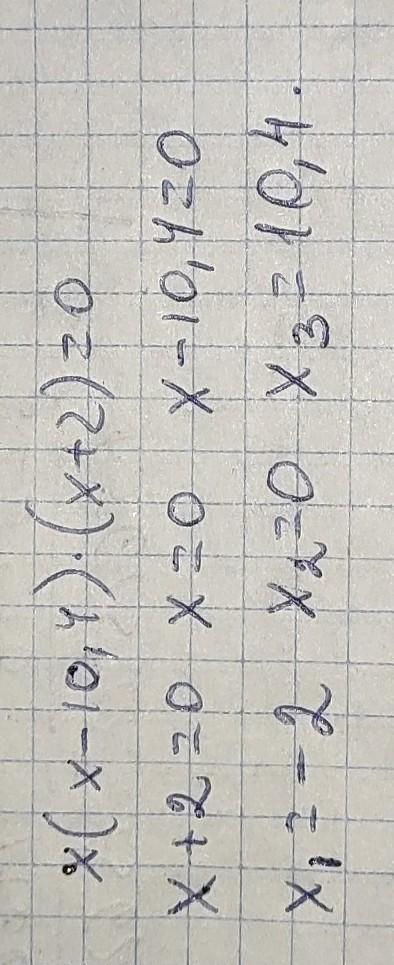 x(x-10,4)·(x+2)=0
x+2=0 x=0 x-10,4=0
x₁=-2 x₂=0 x₃=10,4.